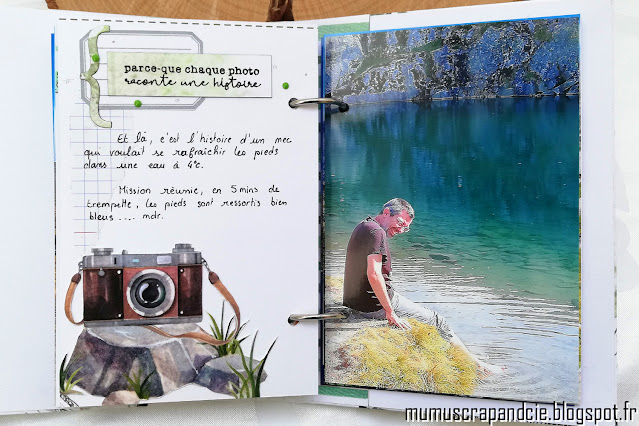 parce-que chaque photo
raconte une histoire
Et là, c'est l'histoire d'un mec
qui voulait se rafraîchir les pieds
dans une eau à 4°c.
Mission réunie, en 5 mins de
trempette, les pieds sont ressortis bien
bleus .... mdr.
mumuscrapandcie.blogspot.fr